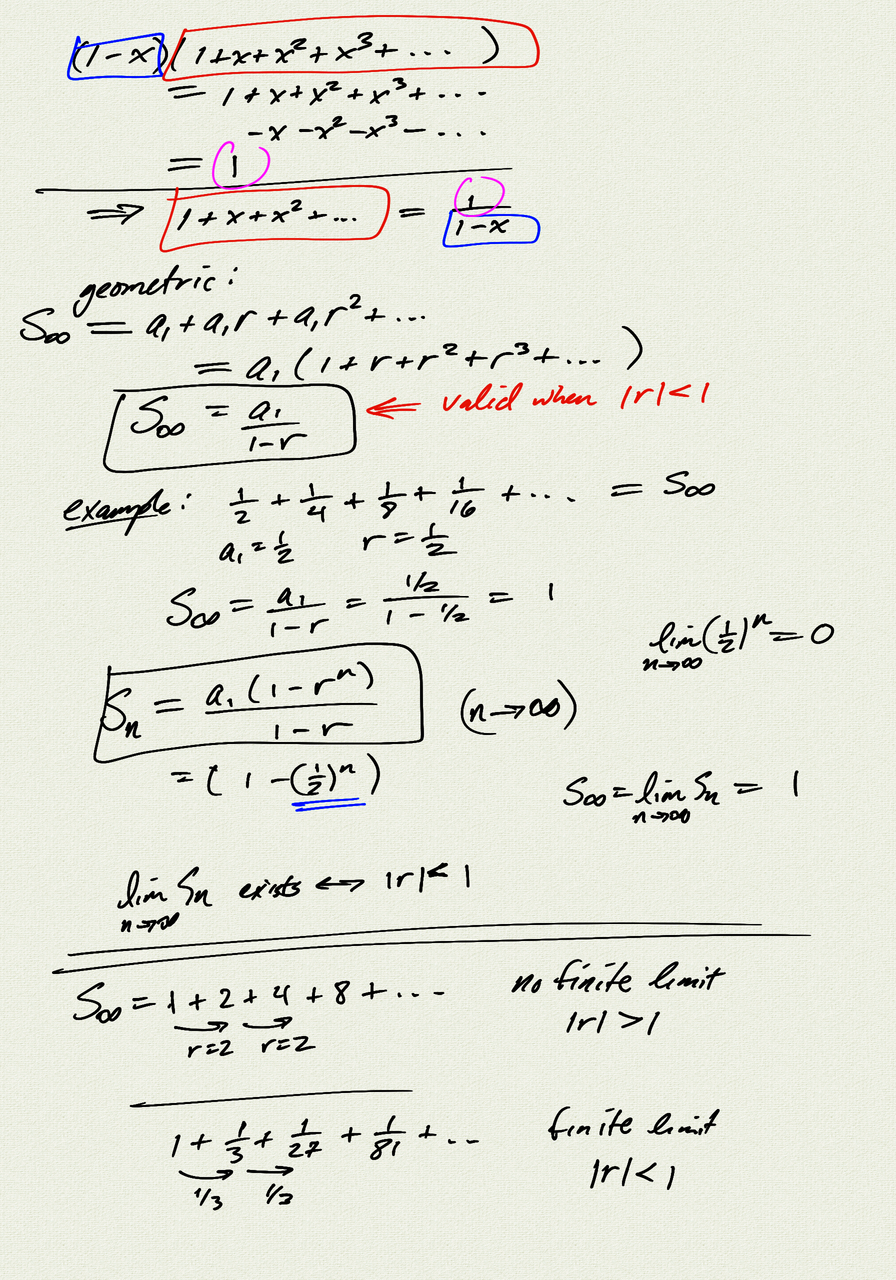 (1-x)(1+x+x²+x³+...)
= 1+x+x²+x³+...
-x-x²-x³-...
= 1
⟹ 1+x+x²+... = 1/(1-x)
geometric:
S∞ = a₁+a₁r+a₁r²+...
= a₁(1+r+r²+r³+...)
S∞ = a₁/(1-r) ⇐ valid when |r|<1
example: 1/2 + 1/4 + 1/8 + 1/16 + ... = S∞
a₁=1/2 r=1/2
S∞ = a₁/(1-r) = (1/2)/(1-1/2) = 1
lim n→∞ (1/2)ⁿ = 0
Sₙ = a₁(1-rⁿ)/(1-r) (n→∞)
= (1-(1/2)ⁿ)
S∞ = lim n→∞ Sₙ = 1
lim n→∞ Sₙ exists ↔ |r|<1
S∞ = 1+2+4+8+... no finite limit
r=2 r=2 |r|>1
1 + 1/3 + 1/27 + 1/81 + .. finite limit
1/3 1/3 |r|<1